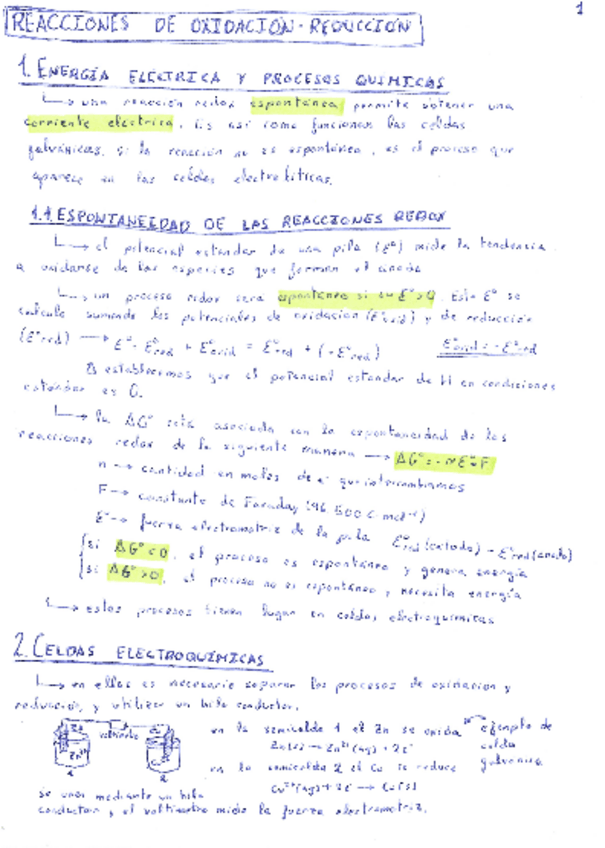 1
REACCIONES DE OXIDACIÓN-REDUCCIÓN
1. ENERGÍA ELÉCTRICA Y PROCESOS QUÍMICOS
↳ una reacción redox espontánea permite obtener una
corriente eléctrica. Es así como funcionan las celdas
galvánicas. si la reacción no es espontánea, es el proceso que
aparece en las celdas electrolíticas.
1.1. ESPONTANEIDAD DE LAS REACCIONES REDOX
↳ el potencial estandar de una pila (E°) mide la tendencia
a oxidarse de las especies que forman el ánodo
↳ un proceso redox será espontáneo si su E°>0. Este E° se
calcula sumando los potenciales de oxidación (E°oxid) y de reducción
(E°red) → E°= E°red + E°oxid = E°red + (-E°red) E°oxid = -E°red
establecemos que el potencial estandar de H en condiciones
estándar es 0.
↳ la ΔG° está asociada con la espontaneidad de las
reacciones redox de la siguiente manera → ΔG°=-nE°F
n → cantidad en moles de e⁻ que intercambiamos
F → constante de Faraday (96 500 C mol⁻¹)
E° → fuerza electromotriz de la pila E°red(cátodo) - E°red(ánodo)
si ΔG°<0, el proceso es espontáneo y genera energía
si ΔG°>0, el proceso no es espontáneo y necesita energía
↳ estos procesos tienen lugar en celdas electroquímicas
2. CELDAS ELECTROQUÍMICAS
↳ en ellas es necesario separar los procesos de oxidación y
reducción, y utilizar un hilo conductor.
voltímetro
en la semicelda 1 el Zn se oxida
Zn(s) → Zn²⁺(aq) + 2e⁻
en la semicelda 2 el Cu se reduce
Cu²⁺(aq) + 2e⁻ → Cu(s)
ejemplo de
celda
galvánica
se unen mediante un hilo
conductor y el voltímetro mide la fuerza electromotriz.